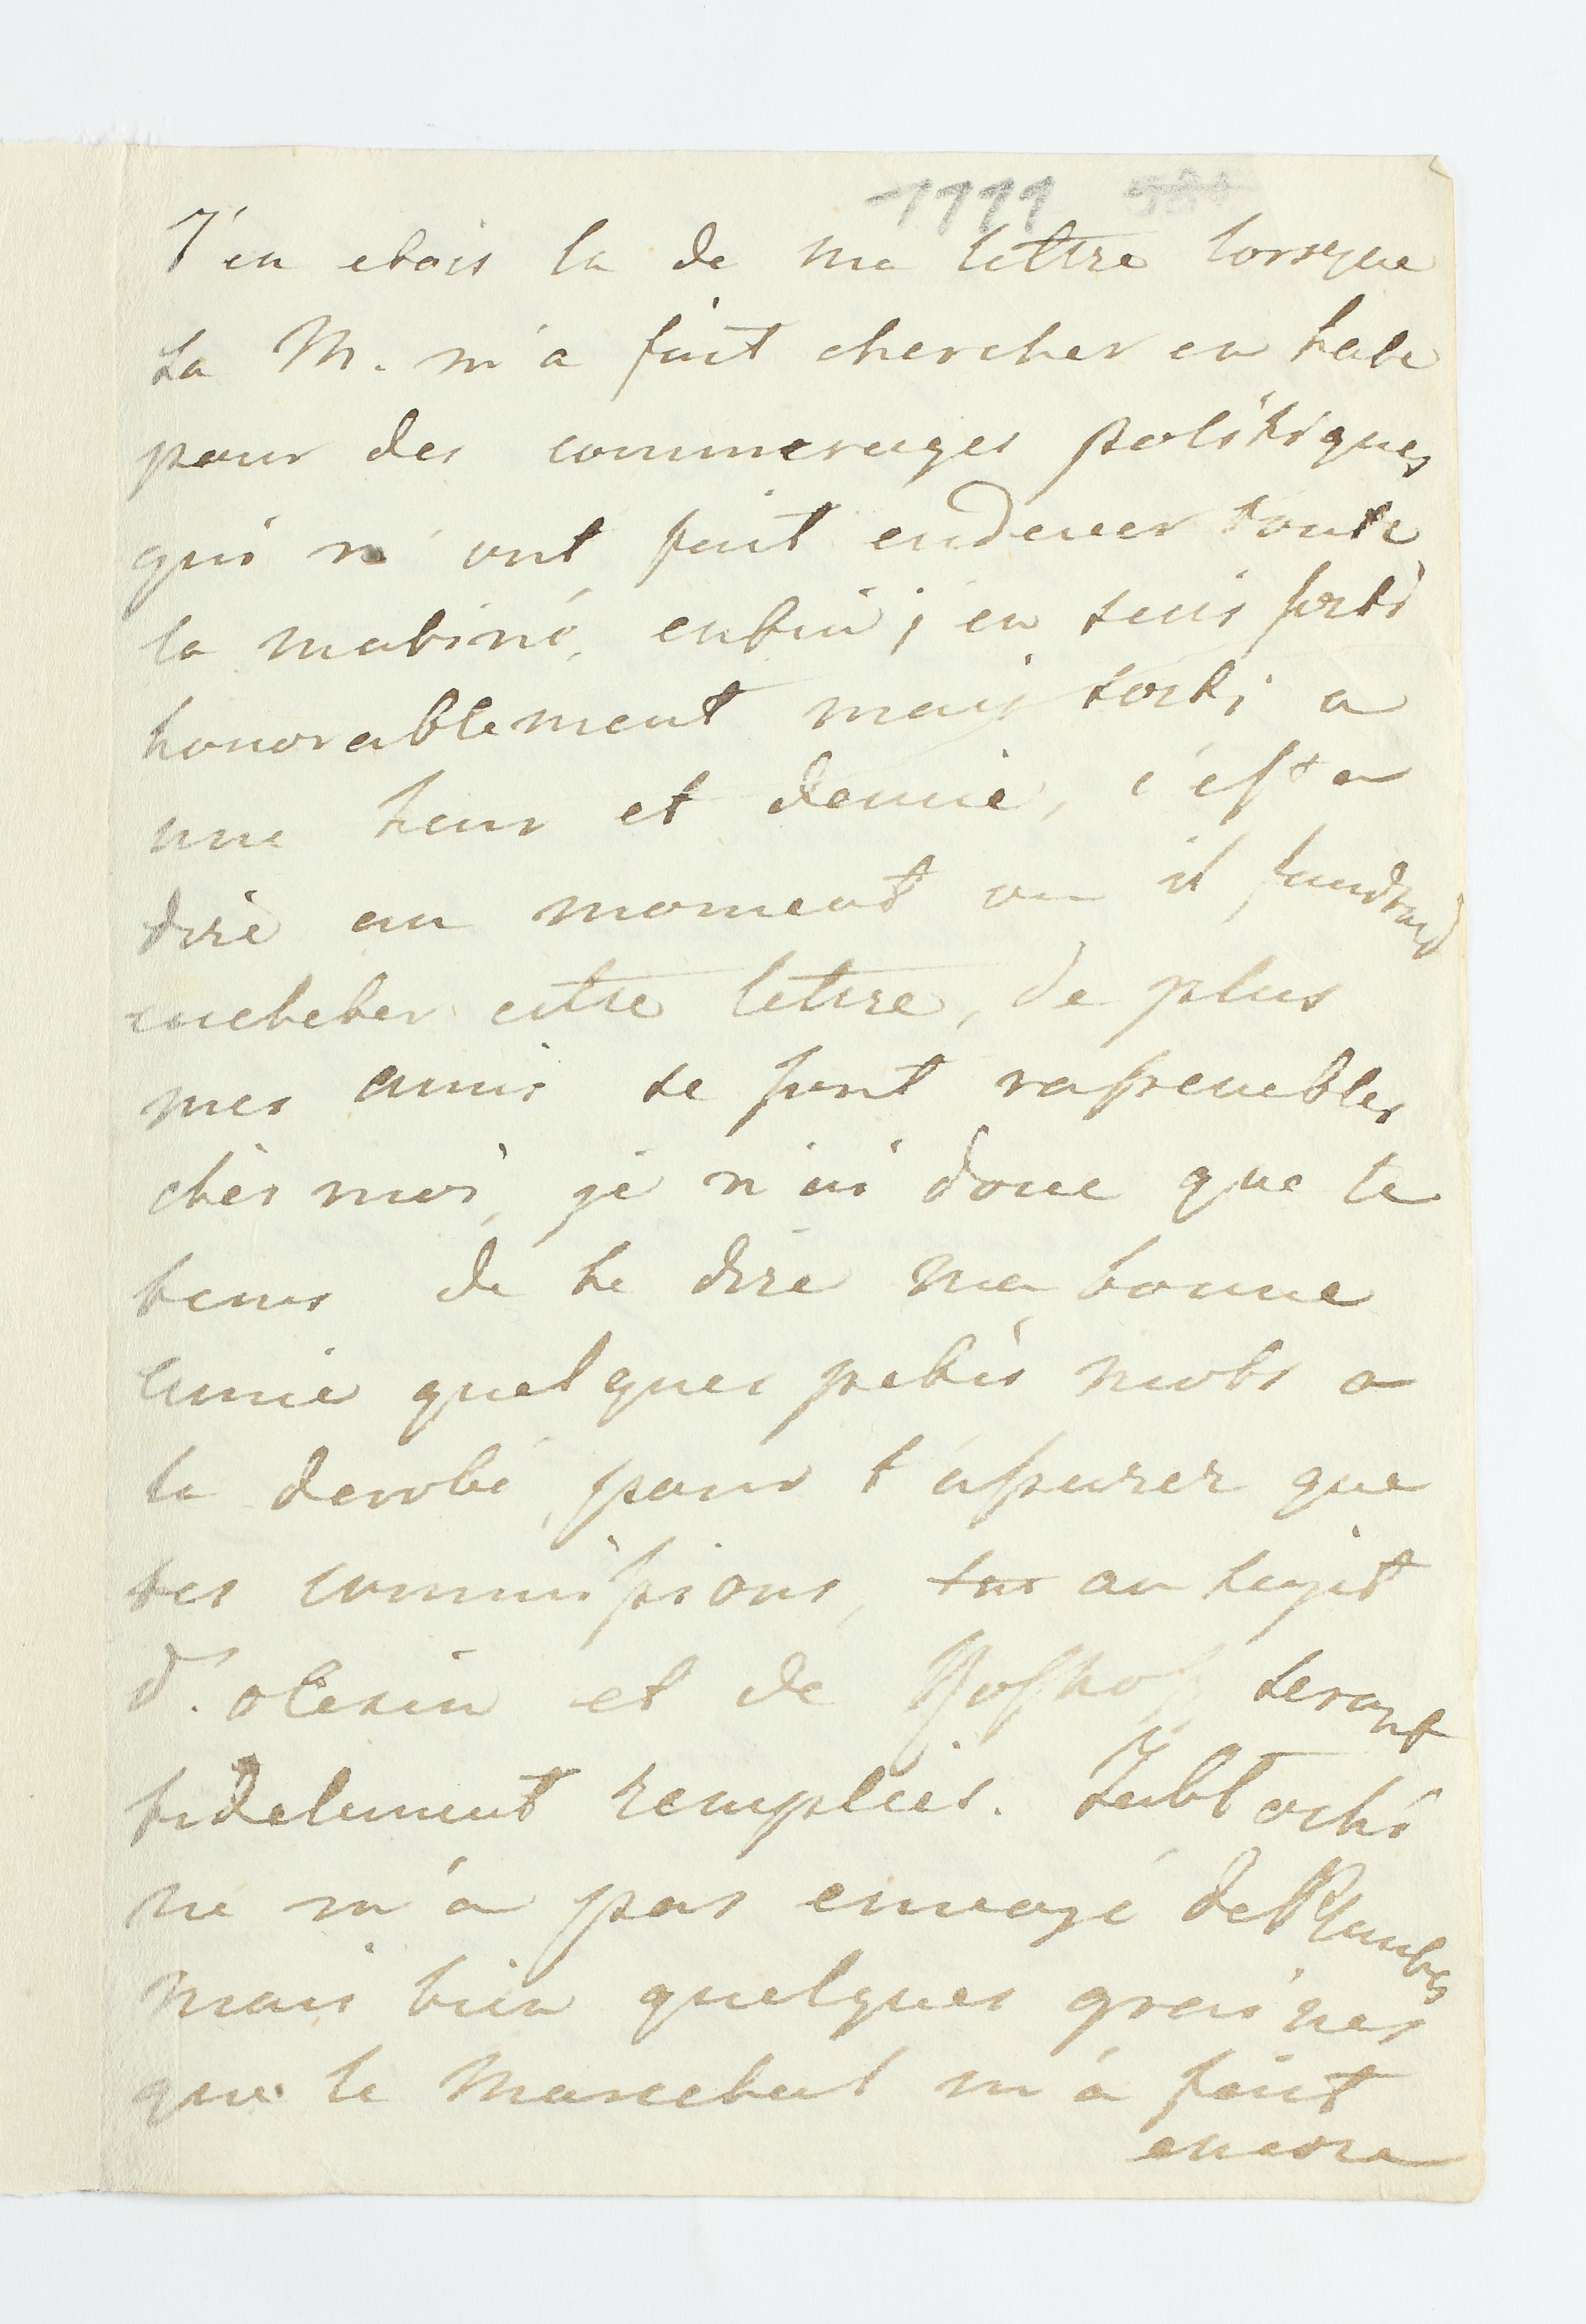 1111
J'en etois la de ma lettre lorsque
sa M. m'a fait chercher en hate
pour des commerages politiques
qui m'ont fait endever toute
la matiné, enfin j'en suis sorti
honorablement mais sorti a
une heur et demie, c'est a
dire au moment ou il faudrait
cacheter cette lettre, de plus
mes amis se sont rassembles
chés moi, je n'ai donc que le
tems de te dire ma bonne
amie quelques petits mots a
la derobé, pour t'assurer que
tes commissions, au sujet
d'Olesin et de seront
fidelement remplies. Jablb
ne m'a pas envoyé de Plantes
mais bien quelques graines
que le Marechal m'a fait
encore